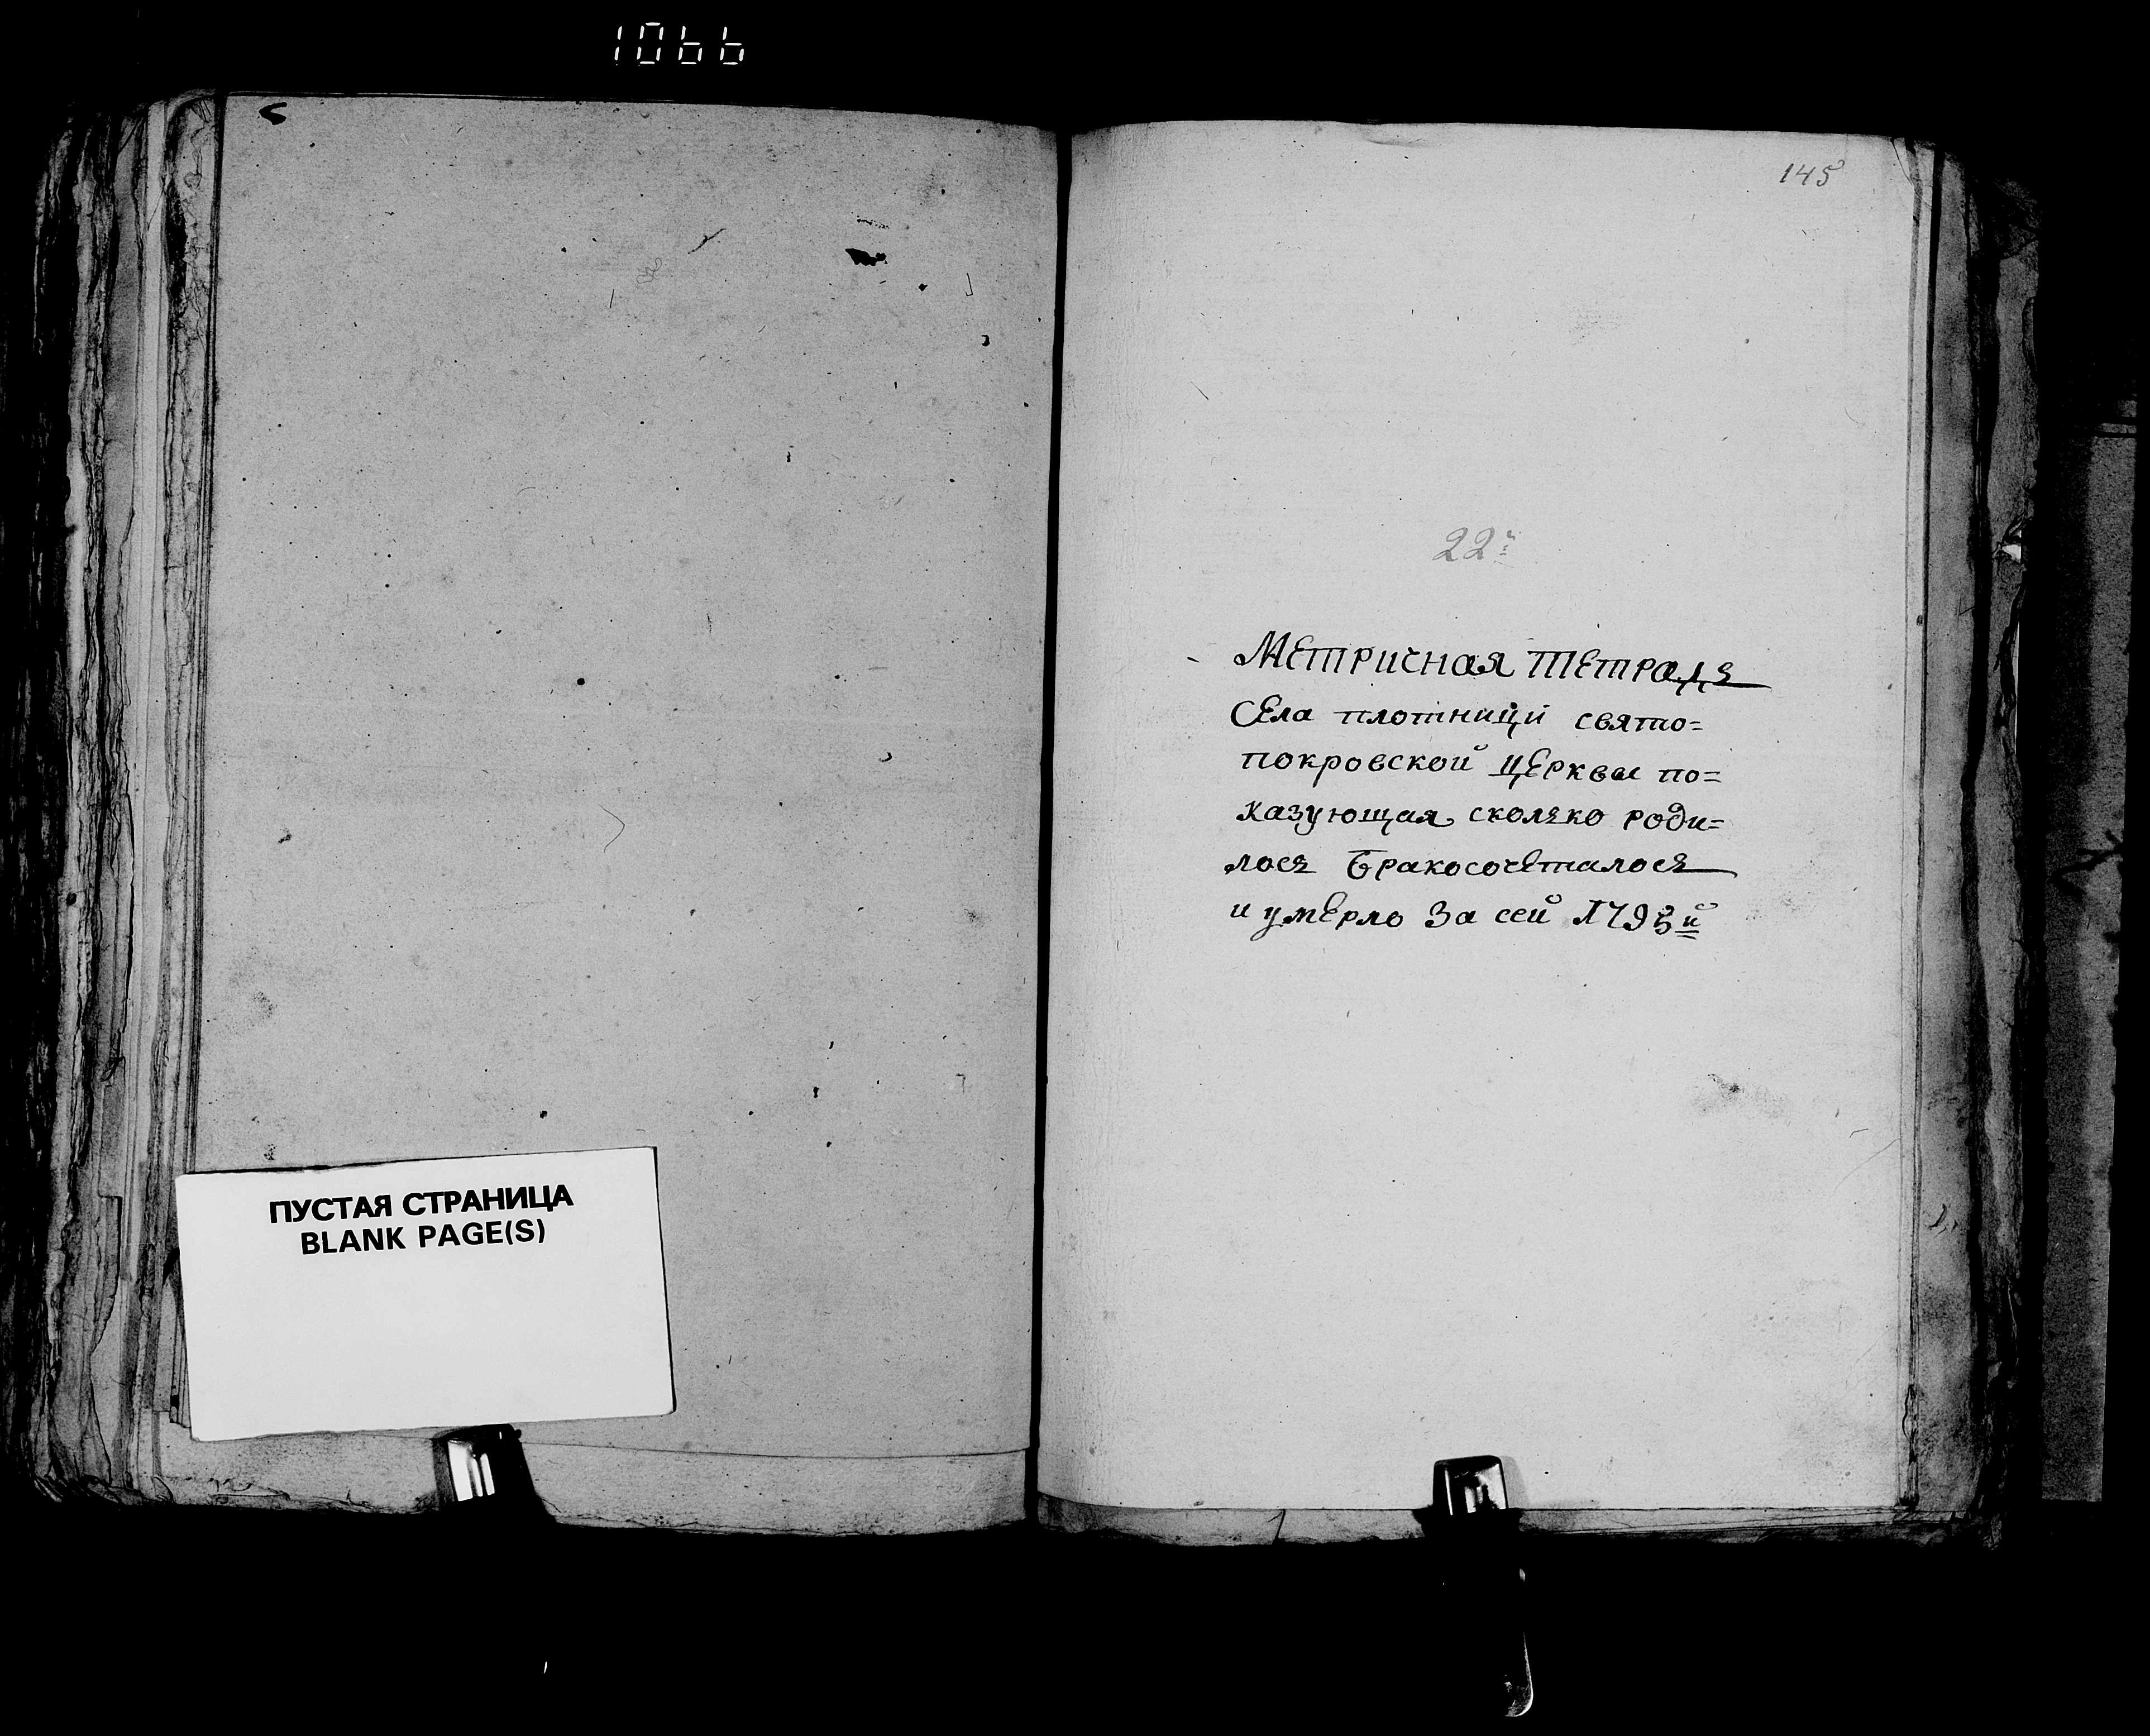 1066
ПУСТАЯ СТРАНИЦА
BLANK PAGE(S)
145
22й
Метричная тетрадь
Села плотници свято=
покровской церквы по=
казующая сколько роди=
лось бракосочеталось
и умерло За сей 1795й